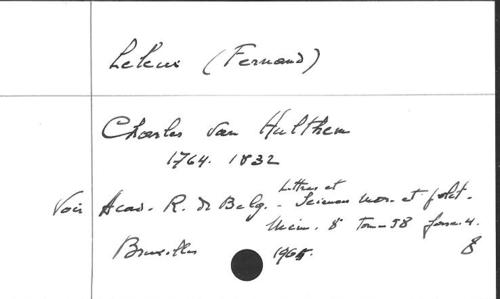 Leleux (Fernand)
Charles Van Hulthem
1764. 1832
Voir Acad. R. de Belg. - Lettres et Sciences mor. et polit.
Mém. 8° Tome 58 fasc. 4.
Bruxelles 1965. 8